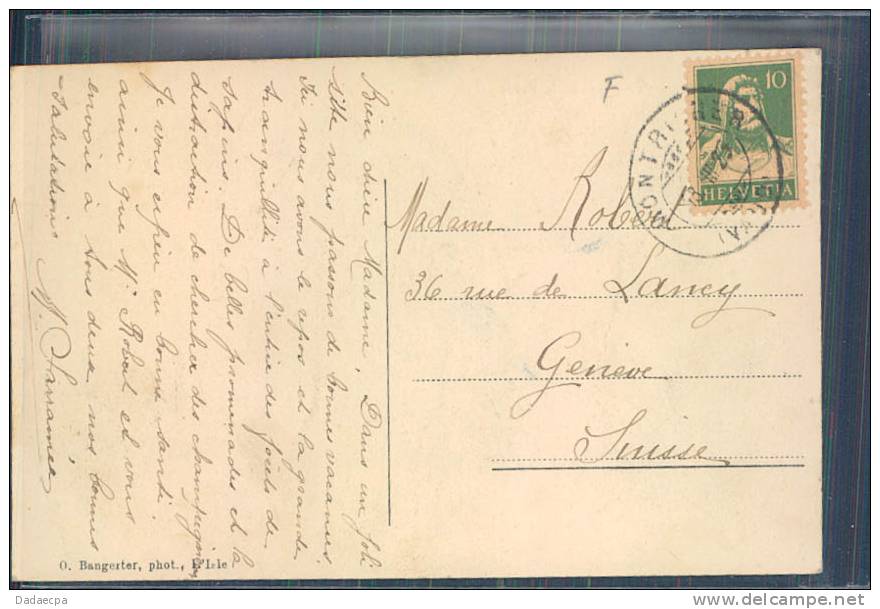 Bien chère Madame, Dans un joli
site nous passons de bonnes vacances.
Ici nous avons le repos et la grande
tranquillité à l'entrée des forêts de
sapins. De belles promenades et la
distraction de chercher des champignons
Je vous espère en bonne santé
ainsi que Mr Robert et vous
envoie à tous deux nos bonnes
salutations
F
10
HELVETIA
MONTRICHER
(VAUD)
Madame Robert
36 rue de Lancy
Genève
Suisse
O. Bangerter, phot., l'Isle
Dadaecpa